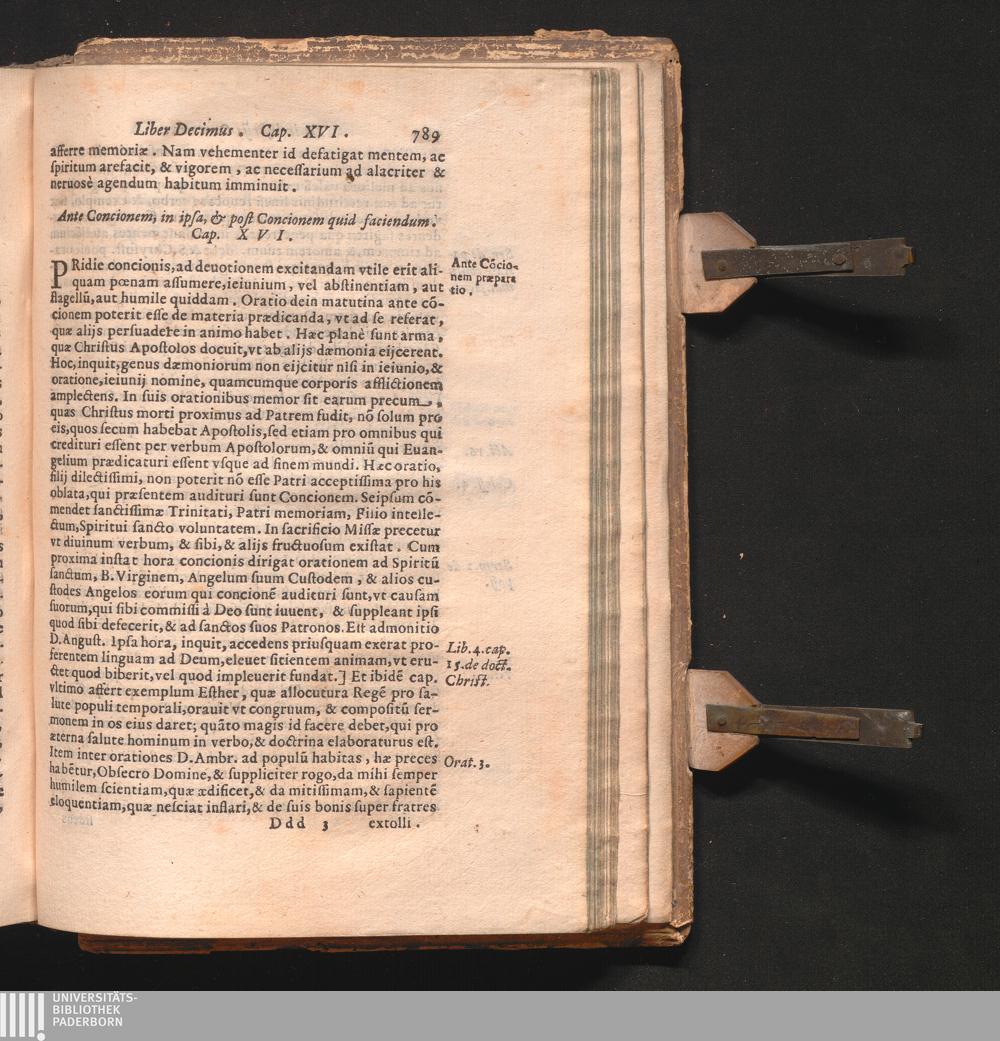 Liber Decimus. Cap. XVI. 789
afferre memoriæ. Nam vehementer id defatigat mentem, ac
ſpiritum arefacit, & vigorem, ac neceſſarium ad alacriter &
neruosè agendum habitum imminuit.
Ante Concionem, in ipſa, & poſt Concionem quid faciendum.
Cap. XVI.
PRidie concionis, ad deuotionem excitandam vtile erit ali-
quam pœnam aſſumere, ieiunium, vel abſtinentiam, aut
flagellũ, aut humile quiddam. Oratio dein matutina ante cõ-
cionem poterit eſſe de materia prædicanda, vt ad ſe referat,
quæ alijs perſuadere in animo habet. Hæc planè ſunt arma,
quæ Chriſtus Apoſtolos docuit, vt ab alijs dæmonia eijcerent.
Hoc, inquit, genus dæmoniorum non eijcitur niſi in ieiunio, &
oratione, ieiunij nomine, quamcumque corporis afflictionem
amplectens. In ſuis orationibus memor ſit earum precum,
quas Chriſtus morti proximus ad Patrem fudit, nõ ſolum pro
eis, quos ſecum habebat Apoſtolis, ſed etiam pro omnibus qui
credituri eſſent per verbum Apoſtolorum, & omniũ qui Euan-
gelium prædicaturi eſſent vſque ad finem mundi. Hæc oratio,
filij dilectiſſimi, non poterit nõ eſſe Patri acceptiſſima pro his
oblata, qui præſentem audituri ſunt Concionem. Seipſum cõ-
mendet ſanctiſſimæ Trinitati, Patri memoriam, Filio intelle-
ctum, Spiritui ſancto voluntatem. In ſacrificio Miſſæ precetur
vt diuinum verbum, & ſibi, & alijs fructuoſum exiſtat. Cum
proxima inſtat hora concionis dirigat orationem ad Spiritũ
ſanctum, B. Virginem, Angelum ſuum Cuſtodem, & alios cu-
ſtodes Angelos eorum qui concionẽ audituri ſunt, vt cauſam
ſuorum, qui ſibi commiſſi à Deo ſunt iuuent, & ſuppleant ipſi
quod ſibi defecerit, & ad ſanctos ſuos Patronos. Eſt admonitio
D. Auguſt. Ipſa hora, inquit, accedens priuſquam exerat pro-
ferentem linguam ad Deum, eleuet ſitientem animam, vt eru-
ctet quod biberit, vel quod impleuerit fundat.] Et ibidẽ cap.
vltimo affert exemplum Eſther, quæ allocutura Regẽ pro ſa-
lute populi temporali, orauit vt congruum, & compoſitũ ſer-
monem in os eius daret; quãto magis id facere debet, qui pro
æterna ſalute hominum in verbo, & doctrina elaboraturus eſt.
Item inter orationes D. Ambr. ad populũ habitas, hæ preces
habẽtur, Obſecro Domine, & ſuppliciter rogo, da mihi ſemper
humilem ſcientiam, quæ ædificet, & da mitiſſimam, & ſapientẽ
eloquentiam, quæ neſciat inflari, & de ſuis bonis ſuper fratres
Ddd 3 extolli.
Ante Cõcio-
nem præpara
tio.
Lib. 4. cap.
15. de doct.
Chriſt.
Orat. 3.
UNIVERSITÄTS-
BIBLIOTHEK
PADERBORN